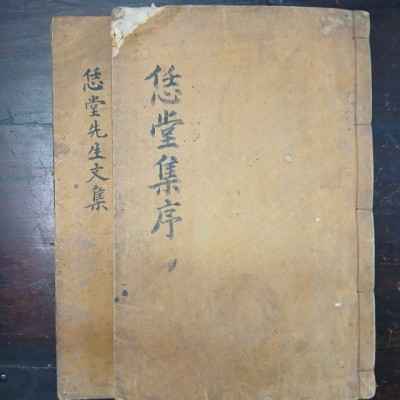 恁堂集序
恁堂先生文集